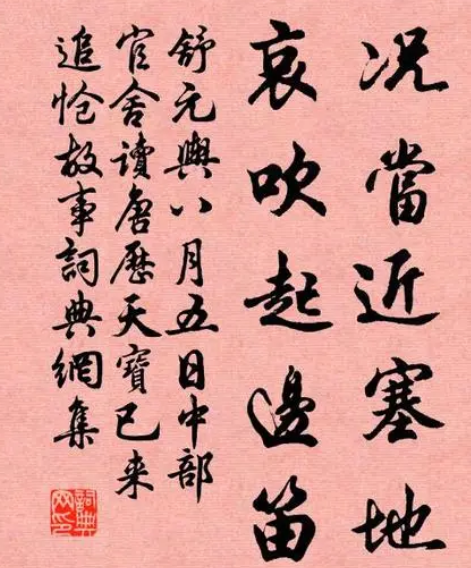 况當近塞地
哀吹起邊笛
舒元輿八月五日中部
官舍讀唐歷天寶已来
追愴故事詞典網集
詞典网印